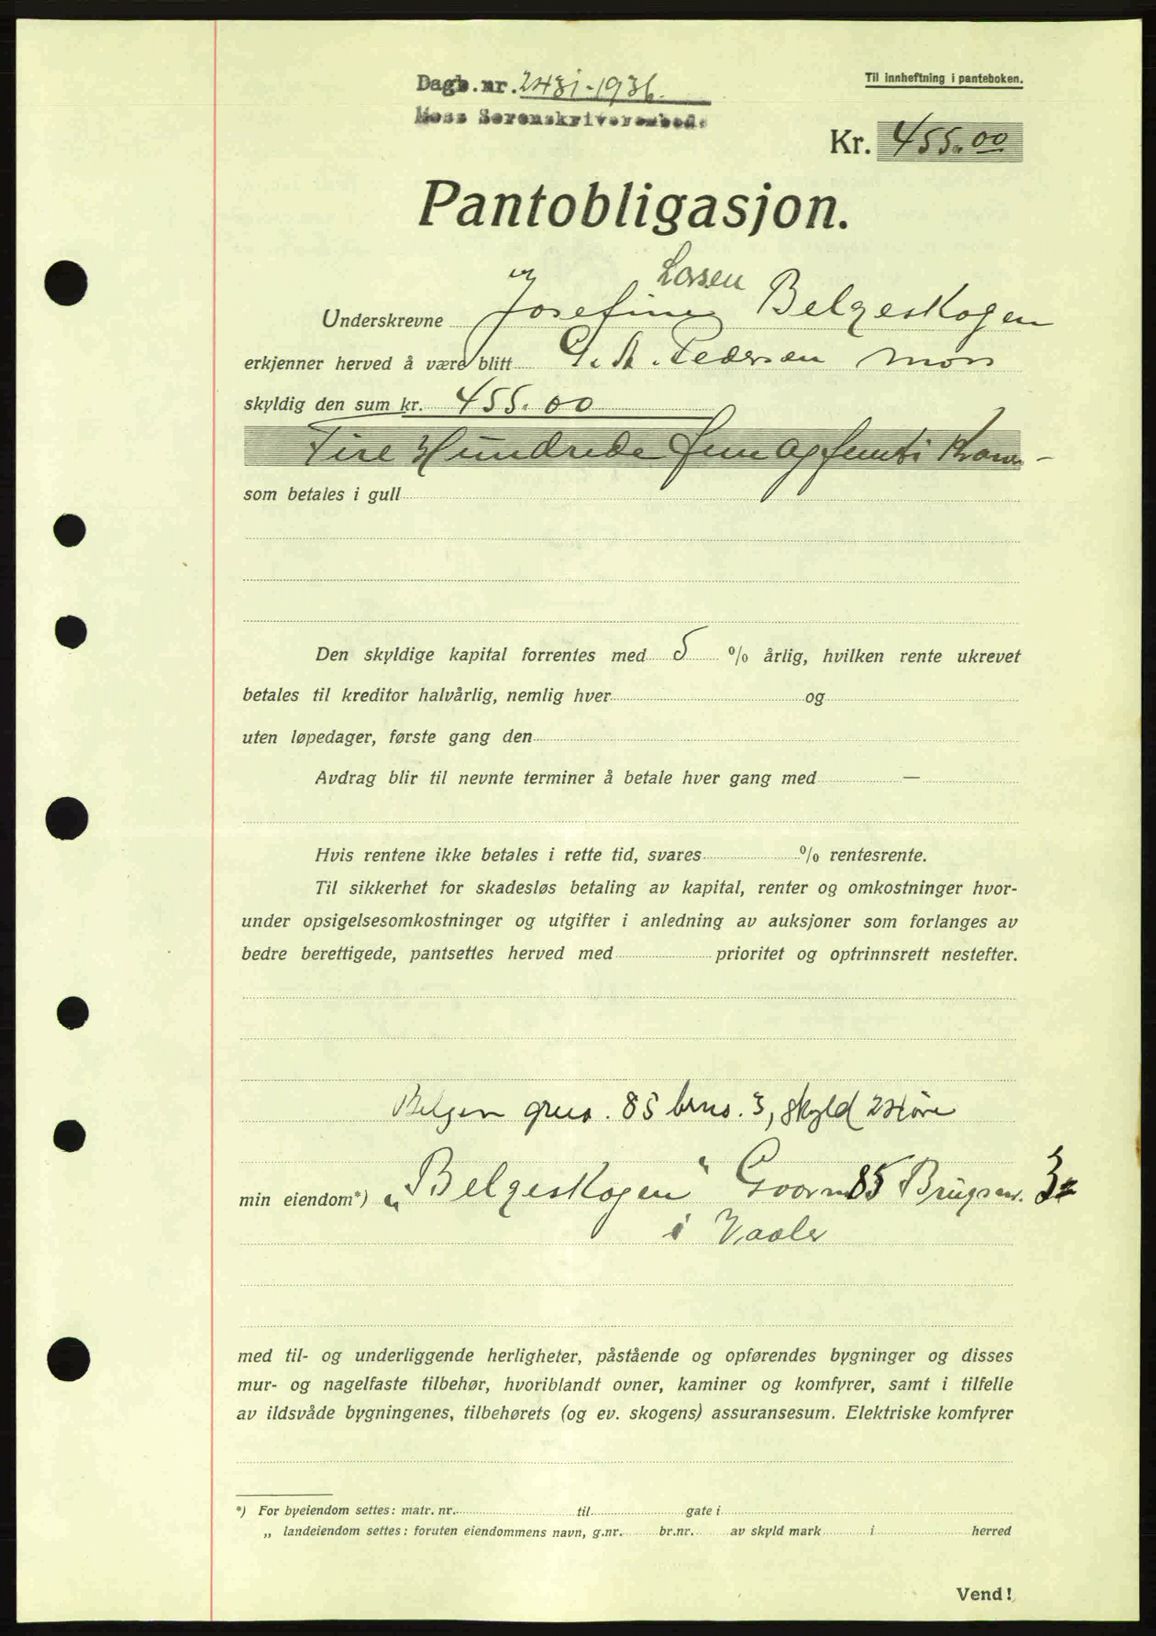 Til innheftning i panteboken.
Dagb.nr. 2431-1936.
Moss Sorenskriverembede
Kr. 455.00
Pantobligasjon.
Larsen
Underskrevne Josefine Belgeskogen
erkjenner herved å være blitt G. A. Pedersen Moss
skyldig den sum kr. 455.00
Fire Hundrede fem og femti Kroner -
som betales i gull
Den skyldige kapital forrentes med 5 % årlig, hvilken rente ukrevet
betales til kreditor halvårlig, nemlig hver og
uten løpedager, første gang den
Avdrag blir til nevnte terminer å betale hver gang med —
Hvis rentene ikke betales i rette tid, svares % rentesrente.
Til sikkerhet for skadesløs betaling av kapital, renter og omkostninger hvor-
under opsigelsesomkostninger og utgifter i anledning av auksjoner som forlanges av
bedre berettigede, pantsettes herved med prioritet og optrinnsrett nestefter.
Belgen gnr. 85 brno. 3, skyld 24 øre
min eiendom*) „Belgeskogen" 85 Brugsnr. 3
i Vaaler
med til- og underliggende herligheter, påstående og opførendes bygninger og disses
mur- og nagelfaste tilbehør, hvoriblandt ovner, kaminer og komfyrer, samt i tilfelle
av ildsvåde bygningenes, tilbehørets (og ev. skogens) assuransesum. Elektriske komfyrer
*) For byeiendom settes: matr. nr. til gate i
„ landeiendom settes: foruten eiendommens navn, g.nr. br.nr. av skyld mark i herred
Vend!